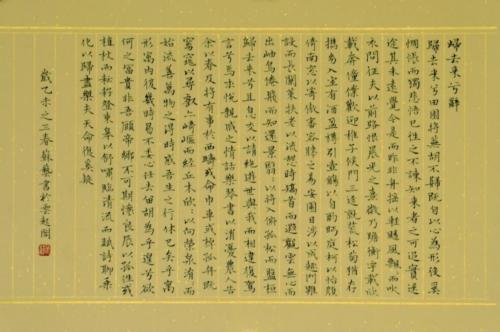 歸去來兮辭
歸去來兮田園將蕪胡不歸既自以心為形役奚
惆悵而獨悲悟已往之不諫知來者之可追實迷
途其未遠覺今是而昨非舟搖以輕颺風飄而吹
衣問征夫以前路恨晨光之熹微乃瞻衡宇載欣
載奔僮僕歡迎稚子候門三逕就荒松菊猶存
攜幼入室有酒盈樽引壺觴以自酌眄庭柯以怡顏
倚南窗以寄傲審容膝之易安園日涉以成趣門雖
設而長關策扶老以流憩時矯首而遐觀雲無心而
出岫鳥倦飛而知還景翳以將入撫孤松而盤桓
歸去來兮且息交以請絕遊世與我而相違復駕
言兮焉求悅親戚之情話樂琴書以消憂農人告
余以春及將有事於西疇或命巾車或棹孤舟既
窈窕以尋壑亦崎嶇而經丘木欣欣以向榮泉涓而
始流善萬物之得時感吾生之行休已矣乎寓
形宇內復幾時曷不委心任去留胡為乎遑遑兮欲
何之富貴非吾願帝鄉不可期懷良辰以孤往或
植杖而耘耔登東皋以舒嘯臨清流而賦詩聊乘
化以歸盡樂夫天命復奚疑
歲乙未之三春蘇藝書於雲起閣